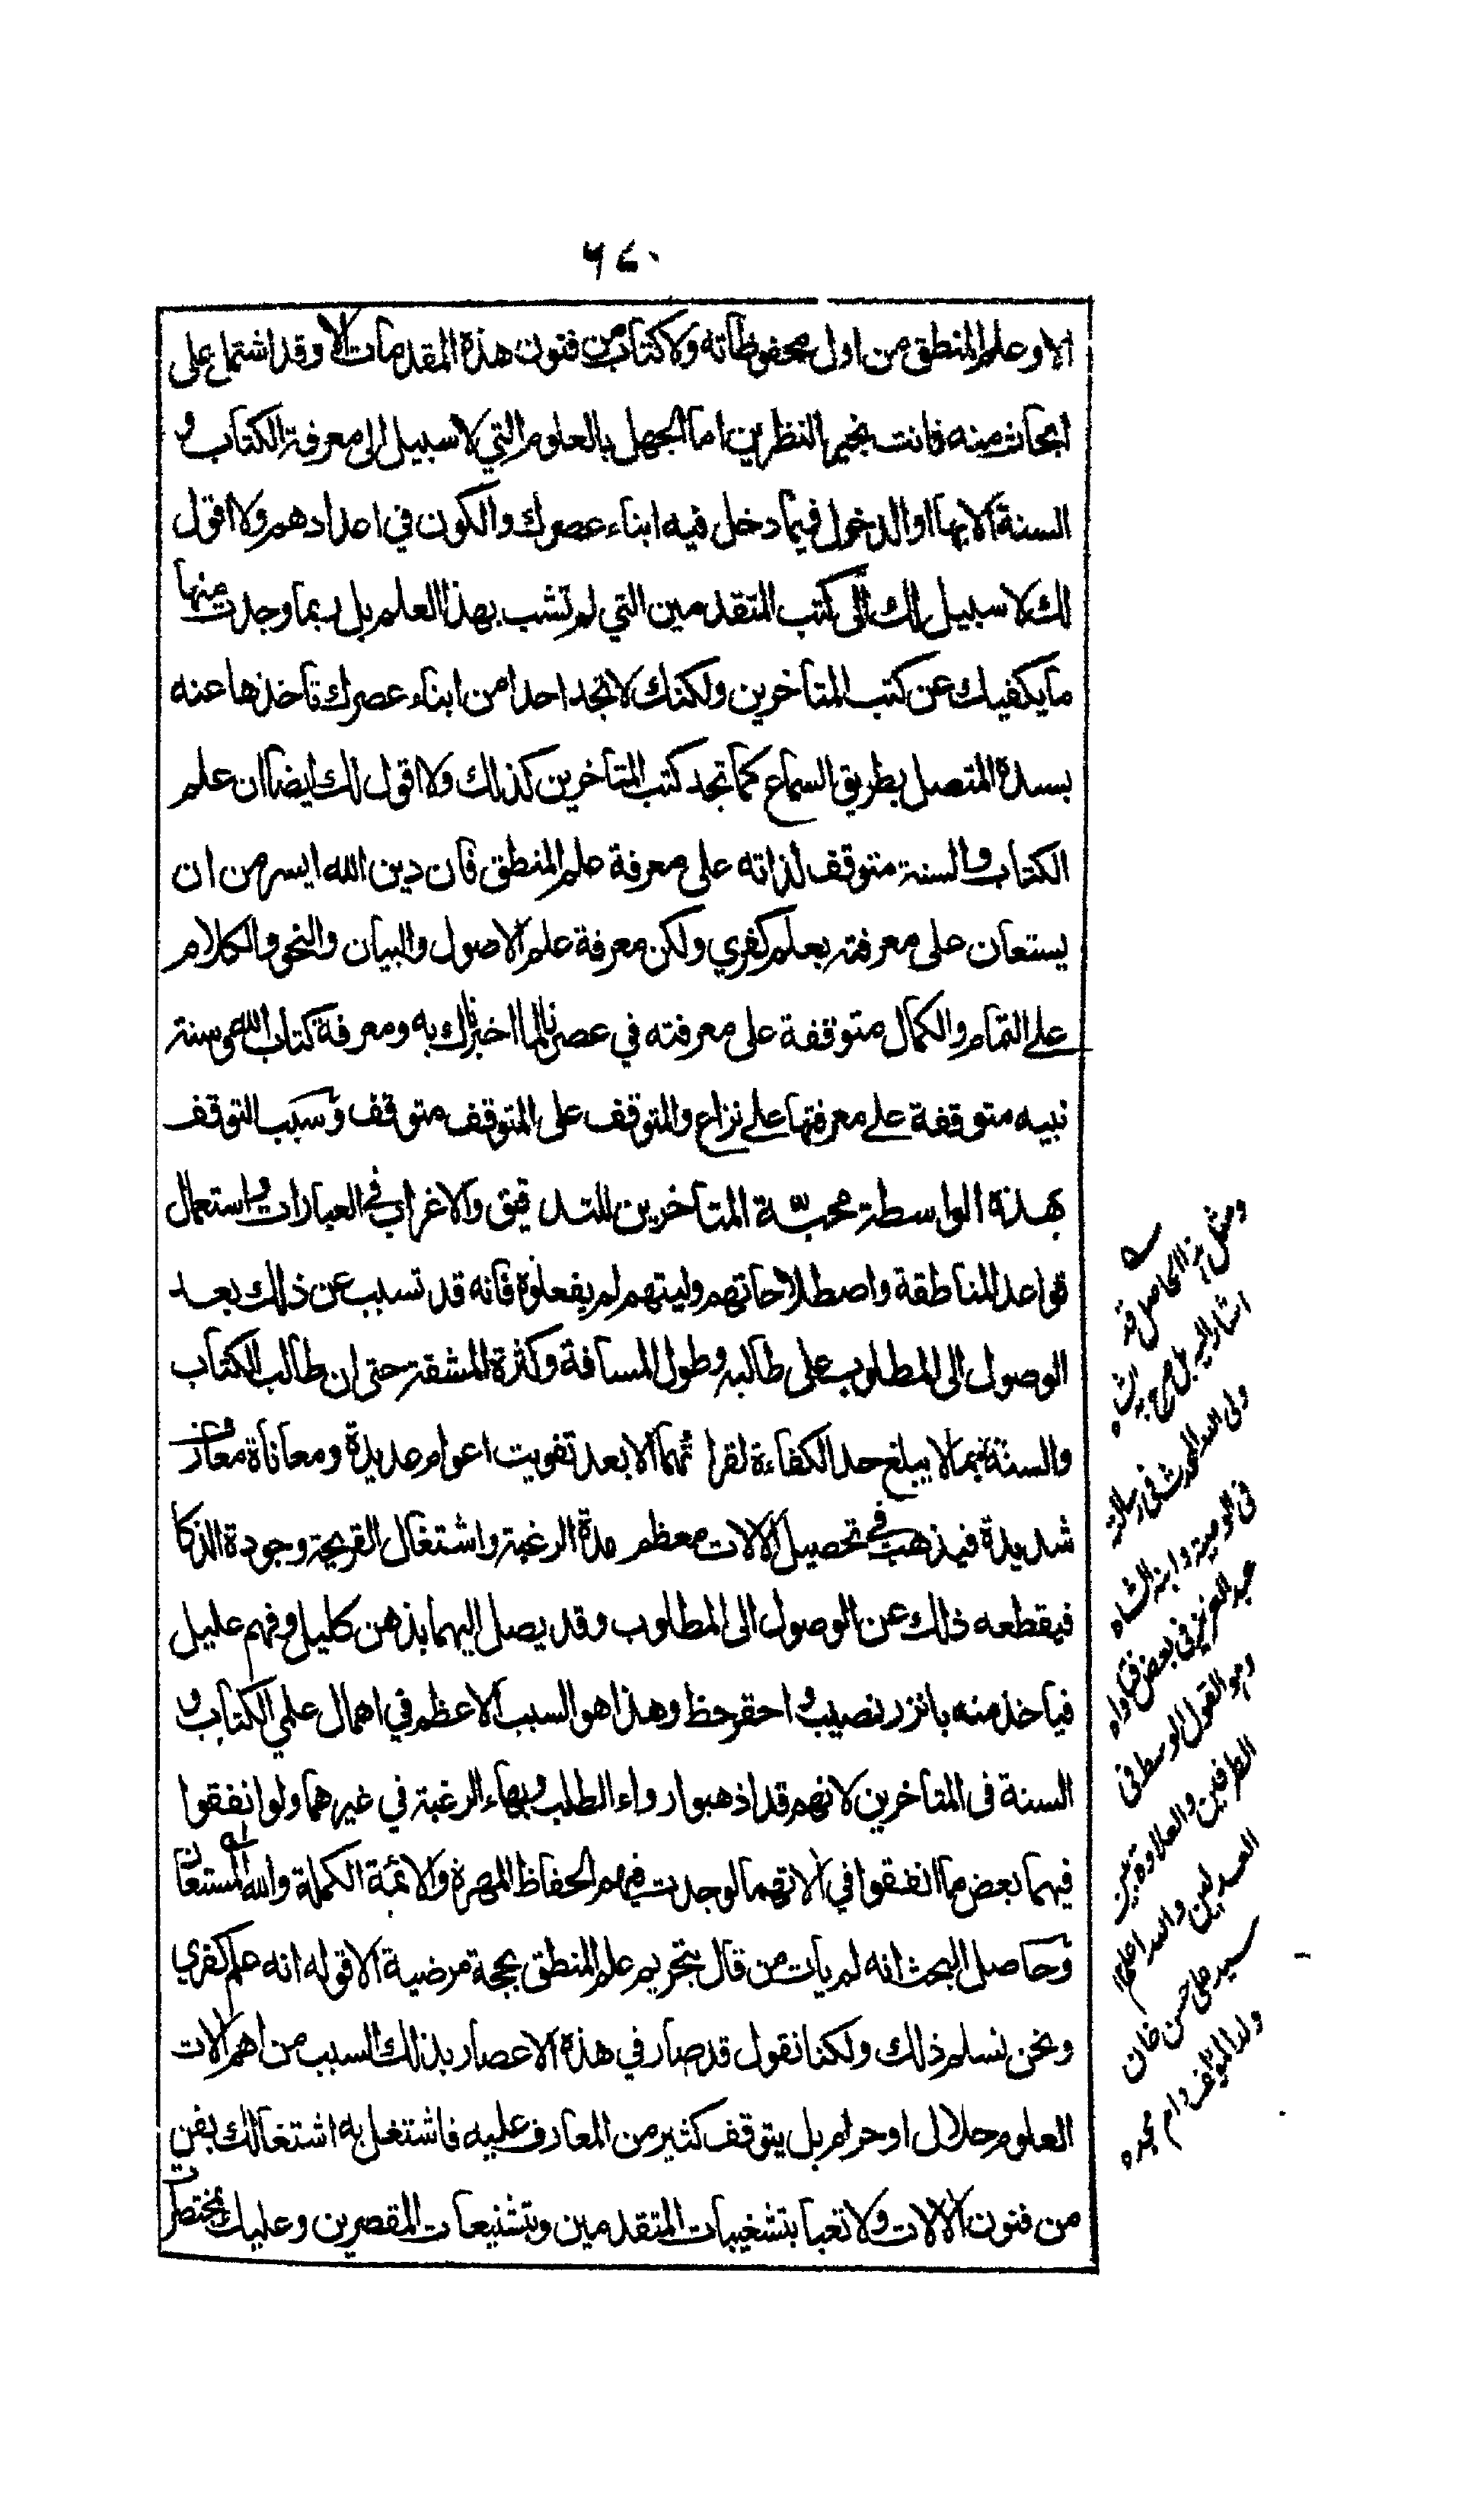 ٦٤٠
الا وعلم المنطق من اول محفوظاته ولا كتاب من فنون هذه المقدمات الا وقد اشتمل على
ابحاث منه فانت بخير النظرين اما الجهل بالعلوم التي لا سبيل الى معرفة الكتاب و
السنة الا بها او الدخول فيما دخل فيه ابناء عصرك والكون في اعدادهم ولا اقول
لك لا سبيل لك الى كتب المتقدمين التي لم تشب بهذا العلم بل ربما وجدت منها
ما يكفيك عن كتب المتاخرين ولكنك لا تجد احدا من ابناء عصرك تاخذها عنه
بسنده المتصل بطريق السماع كما تجد كتب المتاخرين كذلك ولا اقول لك ايضا ان علم
الكتاب والسنة متوقف لذاته على معرفة علم المنطق فان دين الله ايسر من ان
يستعان على معرفته بعلم كفري ولكن معرفة علم الاصول والبيان والنحو والكلام
على التمام والكمال متوقفة على معرفته في عصرنا لما اخبرناك به ومعرفة كتاب الله وسنة
نبيه متوقفة على معرفتها على نزاع والمتوقف على المتوقف متوقف وسبب التوقف
بهذه الواسطة محبة المتاخرين للتدقيق والاغراب في العبارات واستعمال
قواعد المناطقة واصطلاحاتهم وليتهم لم يفعلوه فانه قد تسبب عن ذلك بعد
الوصول الى المطلوب على طالبه وطول المسافة وكثرة المشقة حتى ان طالب الكتاب
والسنة ربما لا يبلغ حد الكفاءة لقرا ئتهما الا بعد تفويت اعوام عديدة ومعاناة معارف
شديدة فيذهب في تحصيل الالات معظم مدة الرغبة واشتغال القريحة وجودة الذكا
فيقطعه ذلك عن الوصول الى المطلوب وقد يصل اليهما بذهن كليل وفهم عليل
فياخذ منه بانزر نصيب واحقر حظ وهذا هو السبب الاعظم في اهمال علمي الكتاب و
السنة في المتاخرين لانهم قد اذهبوا رواء الطلب وبهاء الرغبة في غيرهما ولو انفقوا
فيهما بعض ما انفقوا في الاتهما لوجدت فيهم الحفاظ المهرة والائمة الكملة والله المستعان
وحاصل البحث انه لم يات من قال بتحريم علم المنطق بحجة مرضية الا قوله انه علم كفري
ونحن نسلم ذلك ولكنا نقول قد صار في هذه الاعصار بذلك السبب من اهم الات
العلوم حلال او حرام بل يتوقف كثير من المعارف عليه فاشتغل به اشتغالك بفن
من فنون الالات ولا تعبا بتشغيبات المتقدمين وبتشنيعات المقصرين وعليك بمختصرات
ومثل هذا الحاصل قد
اشار اليه بل صرح به
ولي الله المحدث في رسالته
في الوصية وابنه الشاه
عبد العزيز في بعض فتاواه
وهو القول الوسط في
الطرفين والعلاوة بين
العدلين والله اعلم
سيد علي حسن خان
ولد المؤلف دام مجده